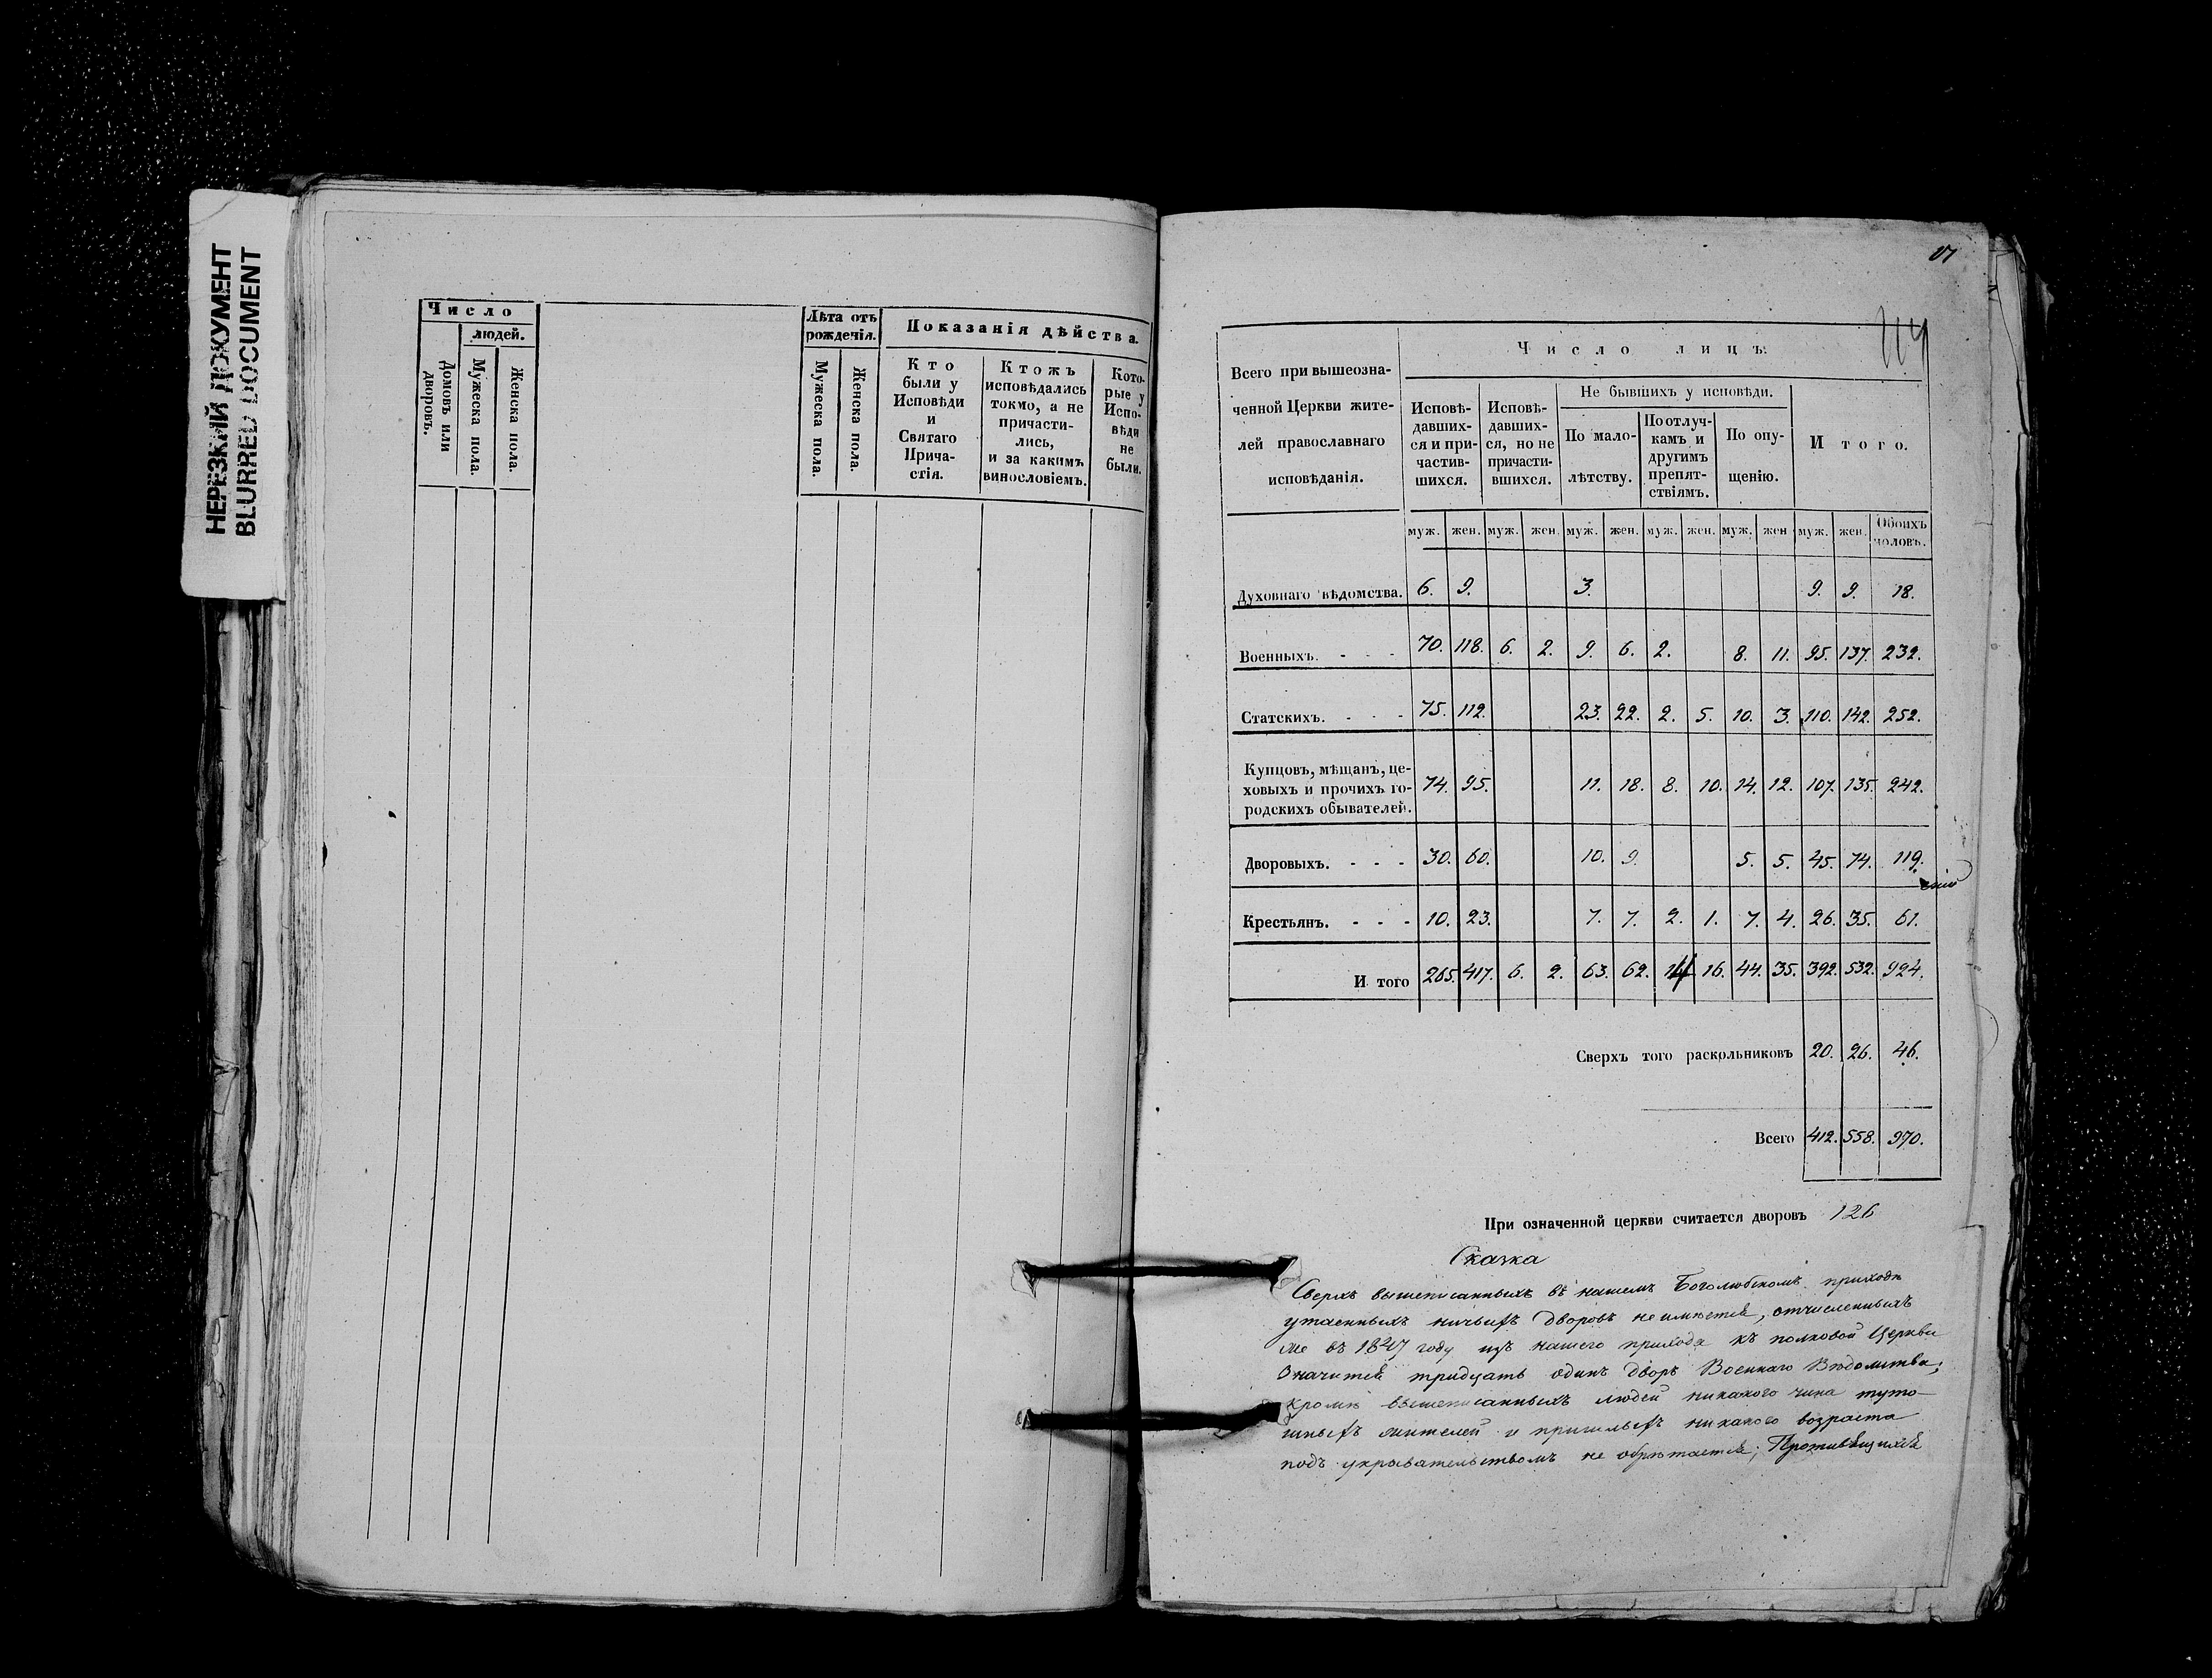 НЕРЕЗКИЙ ДОКУМЕНТ
BLURRED DOCUMENT
Число
людей.
Домовъ или дворовъ.
Мужеска пола.
Женска пола.
Лѣта отъ
рожденія.
Мужеска пола.
Женска пола.
Показанія дѣйства.
Кто
были у
Исповѣди
и
Святаго
Прича-
стія.
Ктожъ
исповѣдались
токмо, а не
причасти-
лись,
и за какимъ
винословіемъ.
Кото-
рые у
Испо-
вѣди
не
были.
Всего при вышеозна-
ченной Церкви жите-
лей православнаго
исповѣданія.
Число лицъ.
Исповѣ-
давших-
ся и при-
частив-
шихся.
Исповѣ-
давших-
ся, но не
причасти-
вшихся.
Не бывшихъ у исповѣди.
По мало-
лѣтству.
По отлуч-
камъ и
другимъ
препят-
ствіямъ.
По опу-
щенію.
Итого.
муж. жен. муж. жен. муж. жен. муж. жен. муж. жен муж. жен. Обоихъ половъ.
Духовнаго вѣдомства. 6. 9. 3. 9. 9. 18.
Военныхъ. - - - 70. 118. 6. 2. 9. 6. 2. 8. 11. 95. 137. 232.
Статскихъ. - - - 75. 112. 23. 22. 2. 5. 10. 3. 110. 142. 252.
Купцовъ, мѣщанъ, це-
ховыхъ и прочихъ го-
родскихъ обывателей. 74. 95. 11. 18. 8. 10. 14. 12. 107. 135. 242.
Дворовыхъ. - - - 30. 60. 10. 9. 5. 5. 45. 74. 119.
Крестьянъ. - - - 10. 23. 7. 7. 2. 1. 7. 4. 26. 35. 61.
И того 265. 417. 6. 2. 63. 62. 14 16. 44. 35. 392. 532. 924.
Сверхъ того раскольниковъ 20. 26. 46.
Всего 412. 558. 970.
При означенной церкви считается дворовъ 126
Сказка
Сверхъ вышеписанныхъ въ нашемъ Боголюбскомъ приходѣ
утаенныхъ ничьихъ дворовъ неимѣется, отчисленныхъ
же въ 1847 году изъ нашего прихода къ полковой Церкви
Значится тридцать одинъ дворъ Военнаго Вѣдомства;
кромѣ вышеписанныхъ людей никакого чина туто-
шныхъ жителей и пришлыхъ никакого возраста
подъ укрывательствомъ не обрѣтается;